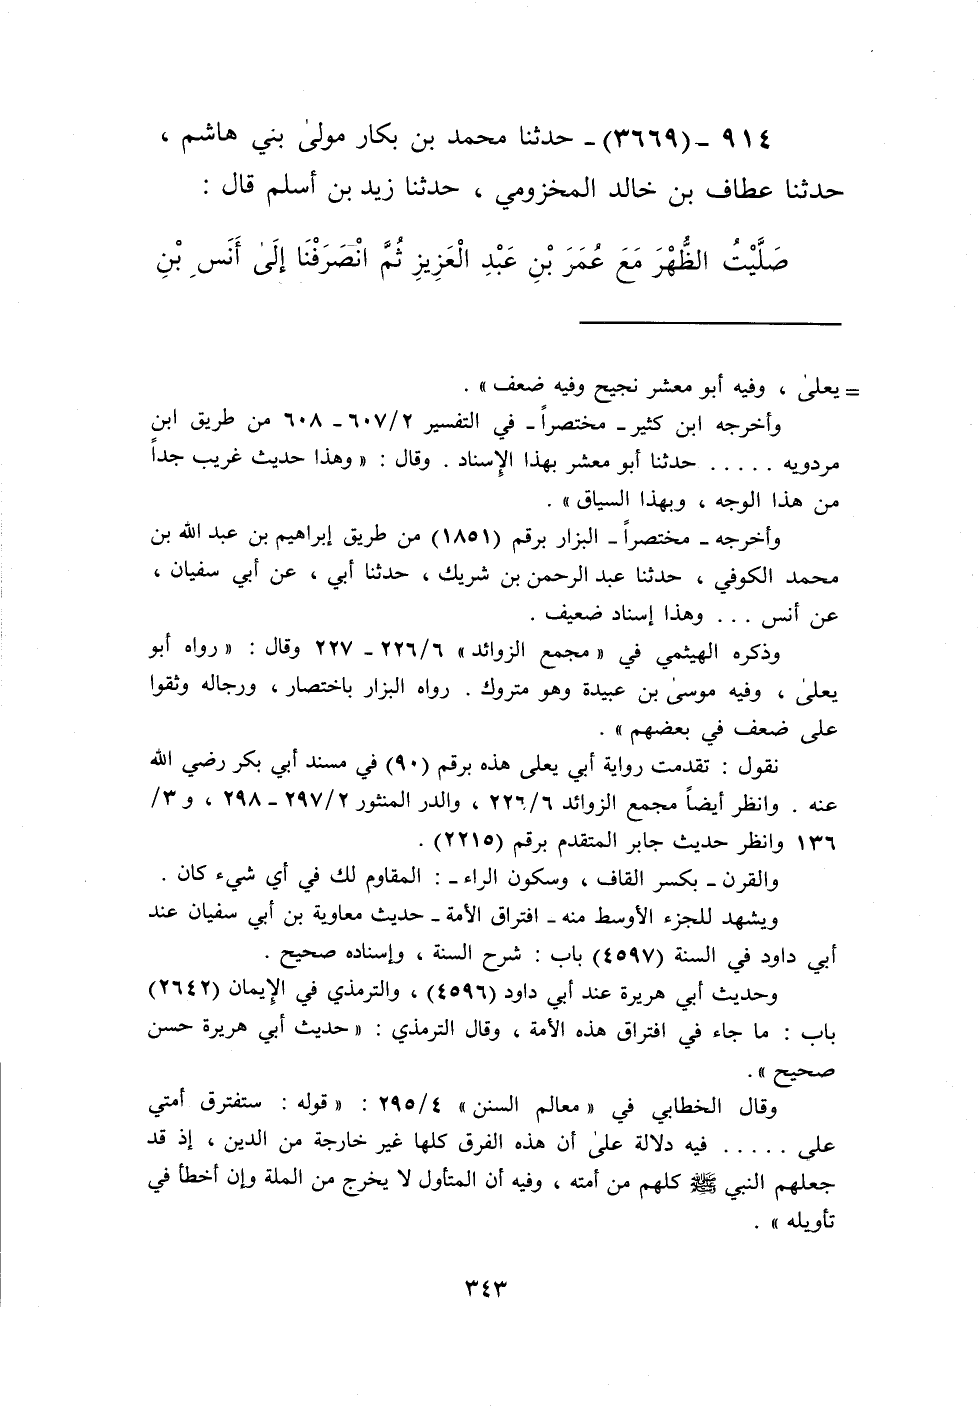 ٩١٤ ـ (٣٦٦٩) ـ حدثنا محمد بن بكار مولىٰ بني هاشم ،
حدثنا عطاف بن خالد المخزومي ، حدثنا زيد بن أسلم قال :
صَلَّيْتُ الظُّهْرَ مَعَ عُمَرَ بْنِ عَبْدِ الْعَزِيزِ ثُمَّ انْصَرَفْنَا إِلَىٰ أَنَسِ بْنِ
= يعلىٰ ، وفيه أبو معشر نجيح وفيه ضعف » .
وأخرجه ابن كثير ـ مختصراً ـ في التفسير ٦٠٧/٢ ـ ٦٠٨ من طريق ابن
مردويه ..... حدثنا أبو معشر بهذا الإسناد . وقال : « وهذا حديث غريب جداً
من هذا الوجه ، وبهذا السياق » .
وأخرجه ـ مختصراً ـ البزار برقم (١٨٥١) من طريق إبراهيم بن عبد الله بن
محمد الكوفي ، حدثنا عبد الرحمن بن شريك ، حدثنا أبي ، عن أبي سفيان ،
عن أنس ... وهذا إسناد ضعيف .
وذكره الهيثمي في « مجمع الزوائد » ٢٢٦/٦ ـ ٢٢٧ وقال : « رواه أبو
يعلىٰ ، وفيه موسىٰ بن عبيدة وهو متروك . رواه البزار باختصار ، ورجاله وثقوا
على ضعف في بعضهم » .
نقول : تقدمت رواية أبي يعلى هذه برقم (٩٠) في مسند أبي بكر رضي الله
عنه . وانظر أيضاً مجمع الزوائد ٢٢٦/٦ ، والدر المنثور ٢٩٧/٢ ـ ٢٩٨ ، و ٣/
١٣٦ وانظر حديث جابر المتقدم برقم (٢٢١٥) .
والقرن ـ بكسر القاف ، وسكون الراء ـ : المقاوم لك في أي شيء كان .
ويشهد للجزء الأوسط منه ـ افتراق الأمة ـ حديث معاوية بن أبي سفيان عند
أبي داود في السنة (٤٥٩٧) باب : شرح السنة ، وإسناده صحيح .
وحديث أبي هريرة عند أبي داود (٤٥٩٦) ، والترمذي في الإيمان (٢٦٤٢)
باب : ما جاء في افتراق هذه الأمة ، وقال الترمذي : « حديث أبي هريرة حسن
صحيح » .
وقال الخطابي في « معالم السنن » ٢٩٥/٤ : « قوله : ستفترق أمتي
على ..... فيه دلالة علىٰ أن هذه الفرق كلها غير خارجة من الدين ، إذ قد
جعلهم النبي ﷺ كلهم من أمته ، وفيه أن المتأول لا يخرج من الملة وإن أخطأ في
تأويله » .
٣٤٣